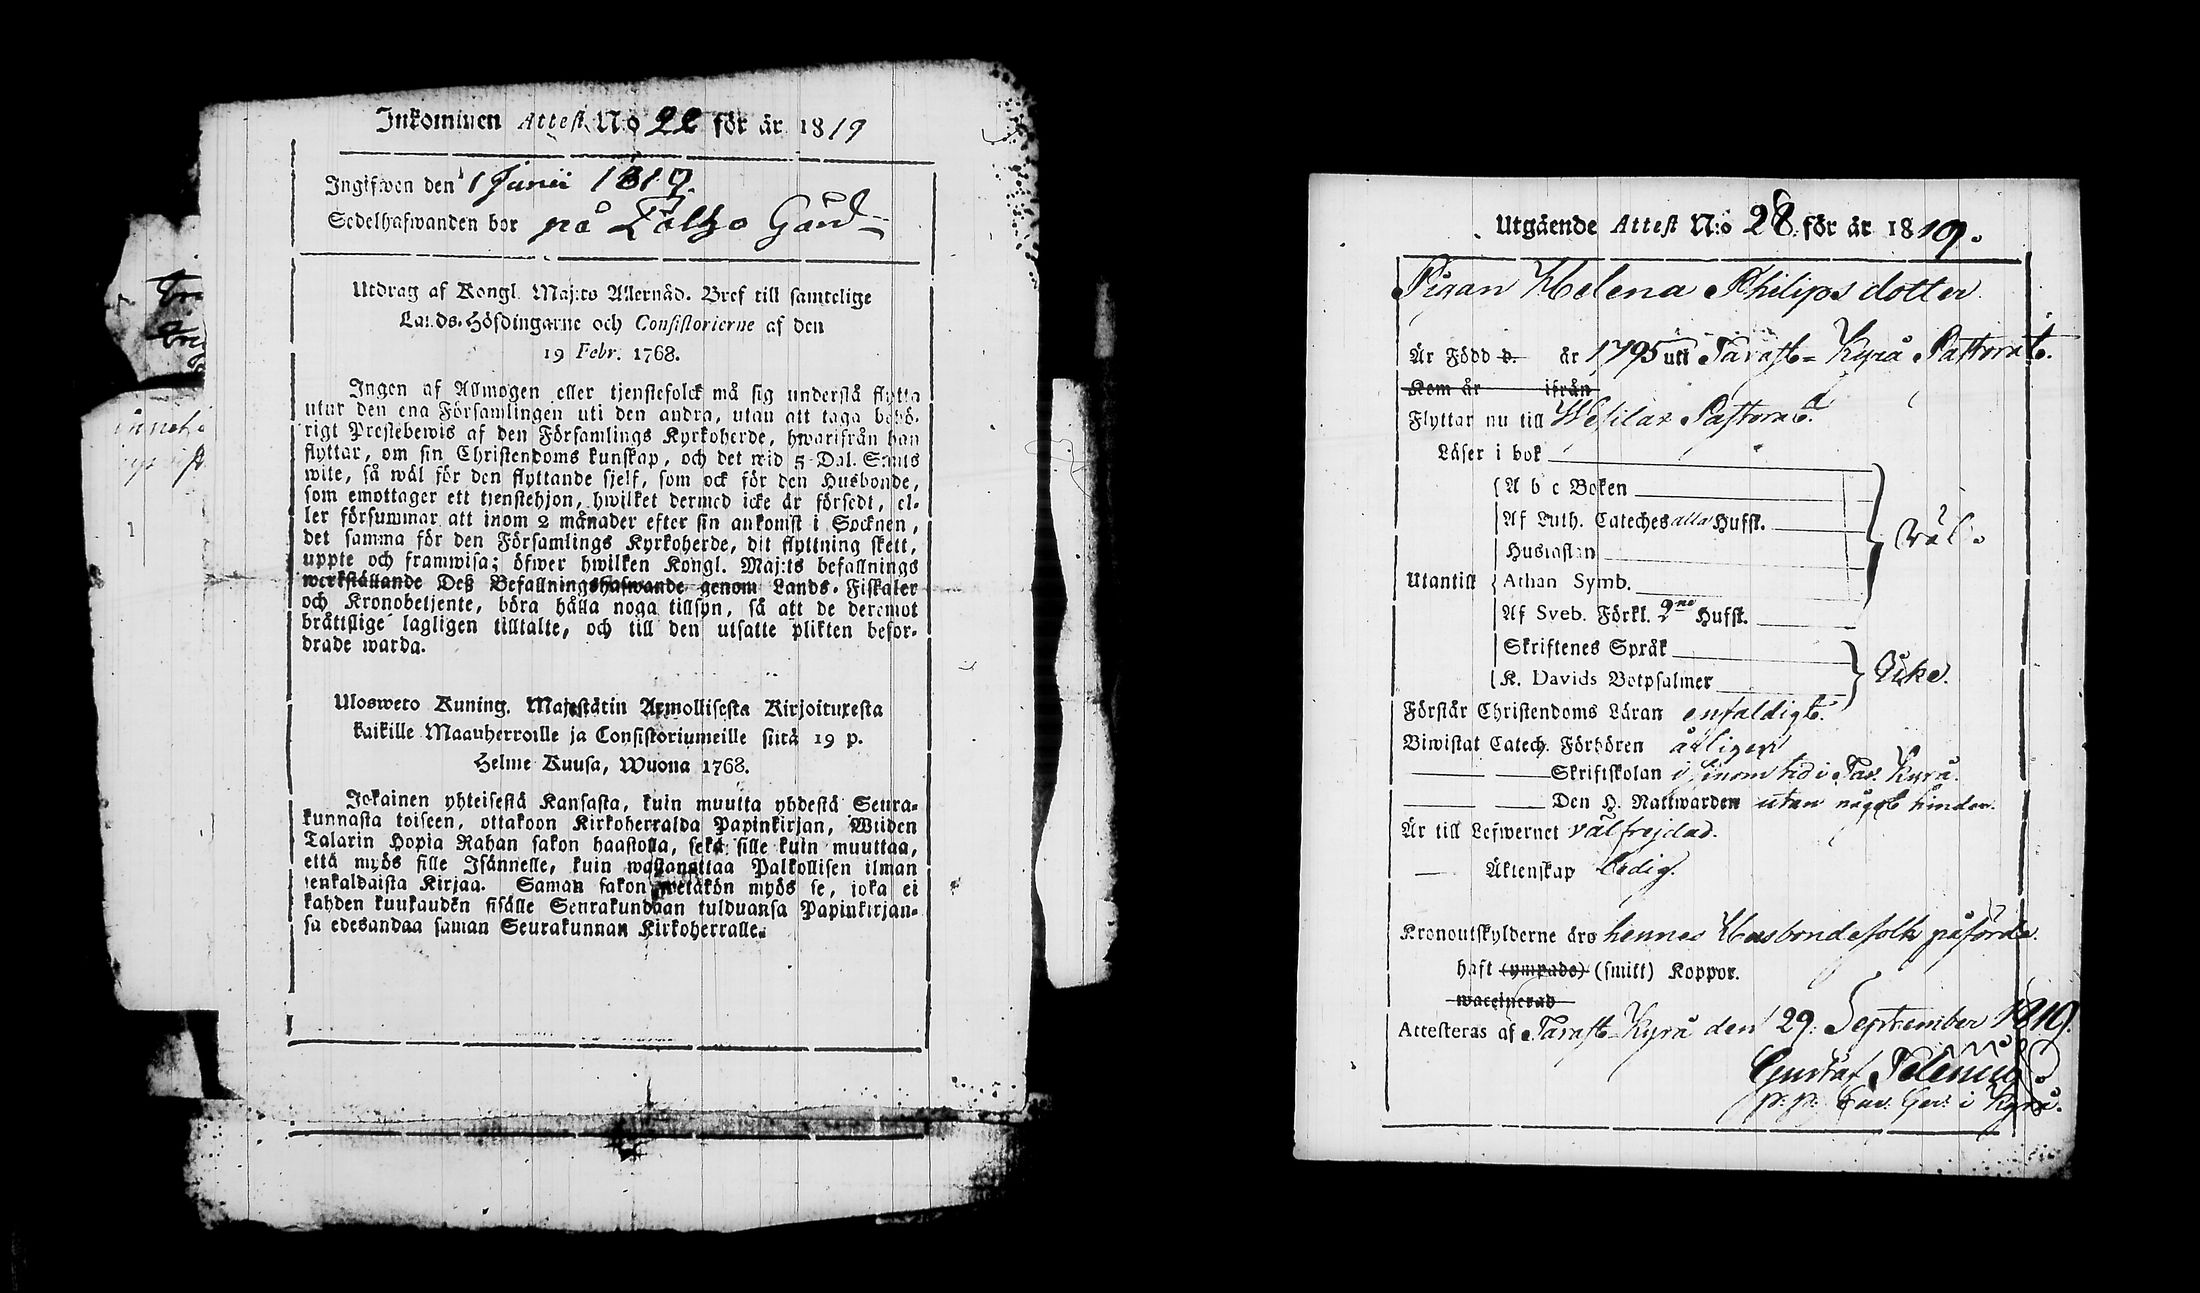 Inkommen Attest N:o 22 för år 1819
Ingifwen den 1 Junii 1819.
Sedelhafwanden bor på Gård
Utdrag af Kongl. Maj:ts Allernåd. Bref till samtelige
Lands-Höfdingarne och Consistorierne af den
19 Febr. 1768.
Ingen af Allmogen eller tjenstefolck må sig understå flytta
utur den ena Församlingen uti den andra, utan att taga behö-
rigt Prestebewis af den Församlings Kyrkoherde, hwarifrån han
flyttar, om sin Christendoms kunskap, och det wid 5 Dal. S:mts
wite, så wäl för den flyttande sjelf, som ock för den Husbonde,
som emottager ett tjenstehjon, hwilket dermed icke är försedt, el-
ler försummar att inom 2 månader efter sin ankomst i Socknen,
det samma för den Församlings Kyrkoherde, dit flyttning skett,
uppte och framwisa; öfwer hwilken Kongl. Maj:ts befallnings
werkställande Deß Befallningshafwande genom Lands-Fiskaler
och Kronobetjente, böra hålla noga tillsyn, så att de deremot
bråttslige lagligen tilltalte, och till den utsatte plikten befor-
drade warda.
Ulosweto Kuning. Majestätin Armollisesta Kirjoituxesta
kaikille Maanherroille ja Consistoriumeille siitä 19 p.
Helme Kuusa, Wuona 1768.
Jokainen yhteisestä Kansasta, kuin muutta yhdestä Seura-
kunnasta toiseen, ottakoon Kirkoherralda Papinkirjan, Wiiden
Talarin Hopia Rahan sakon haastolla, sekä sille kuin muuttaa,
että myös sille Isännelle, kuin wastanottaa Palkollisen ilman
senkaldaista Kirjaa. Saman sakon wetäkön myös se, joka ei
kahden kuukauden sisälle Seurakundaan tulduansa Papinkirjan-
sa edesandaa saman Seurakunnan Kirkoherralle.
Utgående Attest N:o 28 för år 1819.
Pigan Helena Philips dotter.
Är Född d. år 1795 uti Tavast-Kyrå Pastorat.
Kom år ifrån
Flyttar nu till Wesilax Pastorat.
Läser i bok
A b c Boken
Af Luth. Cateches alla Hufst.
Hustaflan
Wäl.
Utantill Athan Symb.
Af Sveb. Förkl. 2ne Hufst.
Skriftenes Språk
K. Davids Botpsalmer
Icke.
Förstår Christendoms Läran enfaldigt.
Biwistat Catech. Förhören årligen
Skriftskolan i sinom tid i Tav. Kyrå.
Den H. Nattwarden utan något hinder.
Är till Lefwernet välfrejdad.
Äktenskap ledig.
Kronoutskylderne äro hennes Husbondefolk påförde.
haft (ympade) (smitt) Koppor.
waccinerad
Attesteras af Tavast-Kyrå den 29. September 1819.
Gustaf
p. p. i Kyrå.